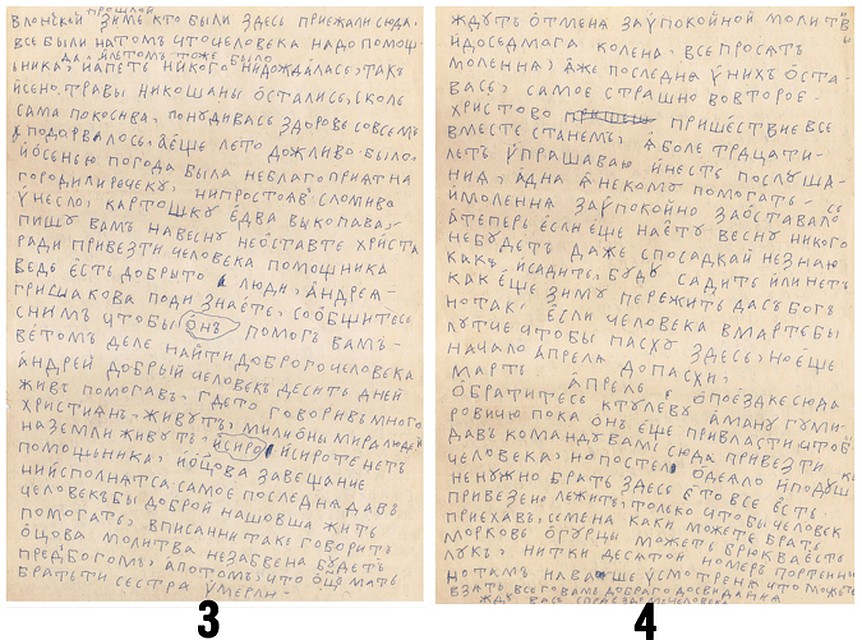 прошлой
Влонской зиме кто были здесь приежали сюда,
все были натомъ чточеловека надо помощ-
да, илетомъ тоже было
ьника, иапеть никого нидождалась, такъ
исено. травы никошаны остались, сколь
сама покосива, понудивась здорове совсемъ
подорвалось, аеще лето дожливо было.
иосенью погода выла неблагоприятна
городилиречеку, нипростояв сломива
унесло, картошку едва выкопава,
пишу вамъ навесну неоставте христа
ради привезти человека помощника
ведь есть добрыто люди, андрея-
гришакова поди знаете, сообшитесь
снимъ чтобы онъ помогъ вамъ-
ветомъ деле найти доброгочеловека
андрей добрый человекъ десить дней
живъ помогавъ, гдето говоривъ много
христианъ, живуть, милионы мира людей
наземли живуть, исиро исиротенетъ
помощьника, иоцова завещание
ниисполнятса. самое последна давъ
человекъбы доброй нашовша жить
помогать, вписаннитаке говорить
оцова молитва незабвена будетъ
предбогомъ, апотомъ, что оце мать
братьти сестра умерли-
3
ждутъ отменя заупокойной молитв
идоседмага колена, все просятъ
моленна, аже последна унихъ оста-
вась, самое страшно вовторое-
христово пришествие все
вместе станемъ, аболе трдцати-
летъ упрашаваю инесть послуша-
ния, адна анекому помогать-
имоленна заупокойно заоставало сь
атеперь если еше наету весну никого
небудетъ даже спосадкай незнаю
какъ исадить, буду садить илинетъ
как еше зиму пережить дасъбогъ
нотак, если человека вмартебы
лутче чтобы пасху здесь, ноеше
начало апреля допасхи,
мартъ апрель
обратитесь ктулеву аману гуми-
ровичю пока онъ еше привласти чтоб
давъ командувамъ сюда привезти
человека, нопостел одеало иподуш
ненужно брать здесь ето все есть.
привезено лежитъ, только чтобы человек
приехавъ, семена каки можете брать
морковь огурцы можетъ брюкваесть
лукъ, нитки десятой номеръ портенни
нотамъ наваше усмотрена что можете
взять всеговамъ доброго досвидания
жду васъ
4